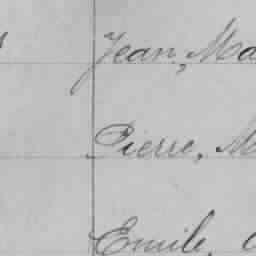 Jean, Ma
Pierre, M
Emile,